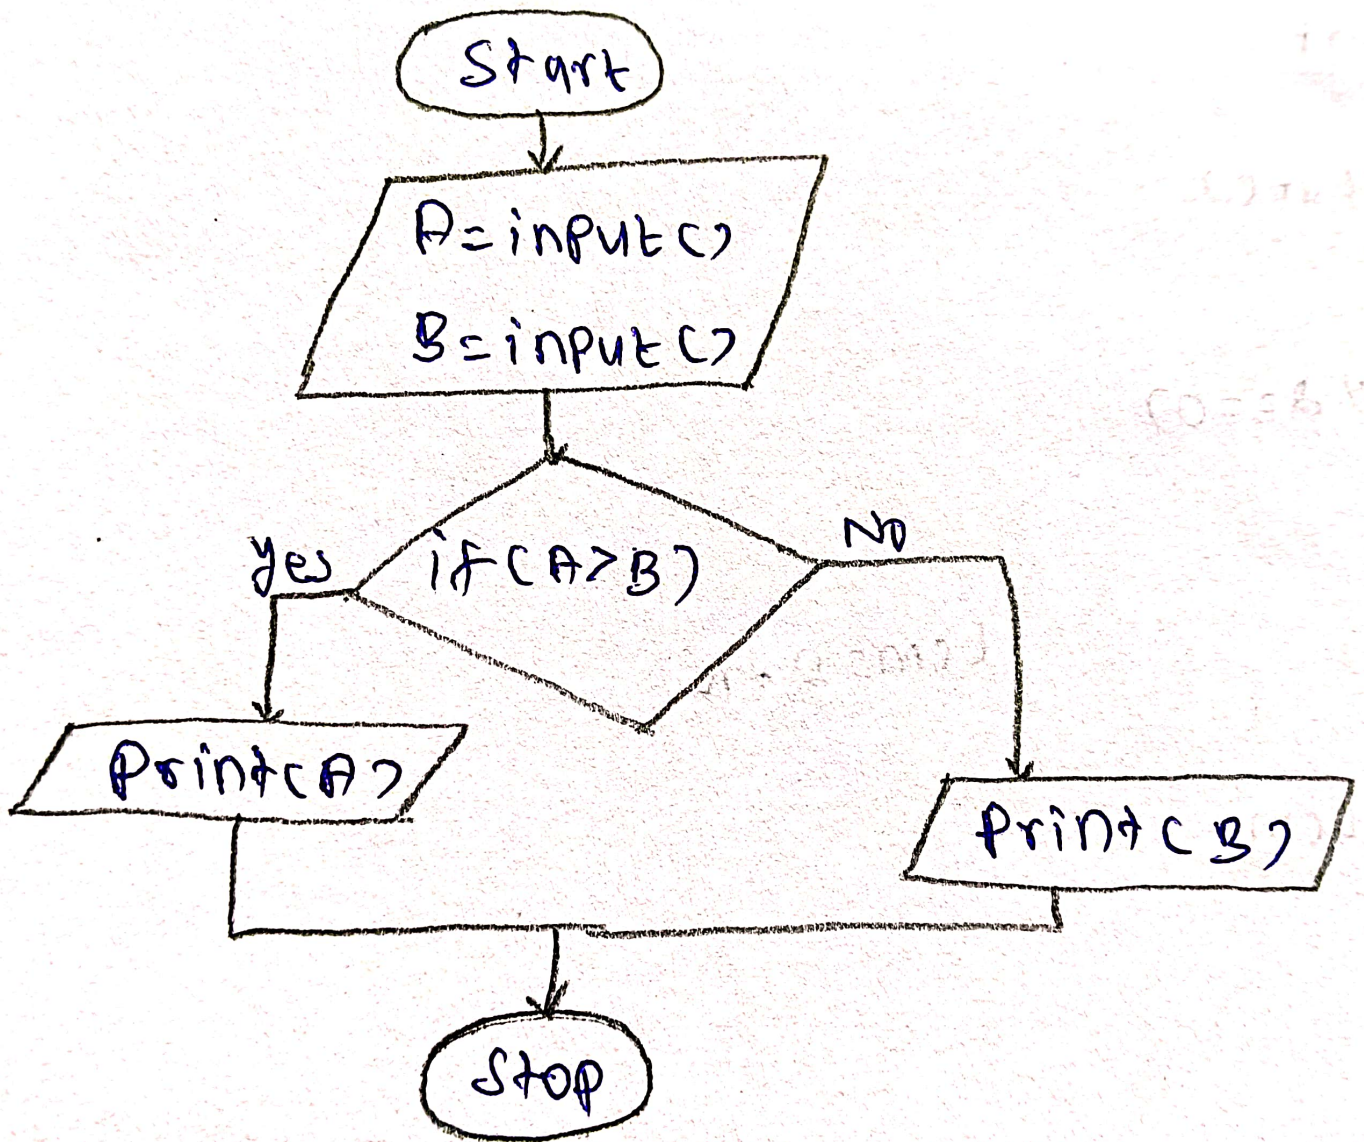 Start
A=input()
B=input()
if(A>B)
yes
No
Print(A)
Print(B)
Stop